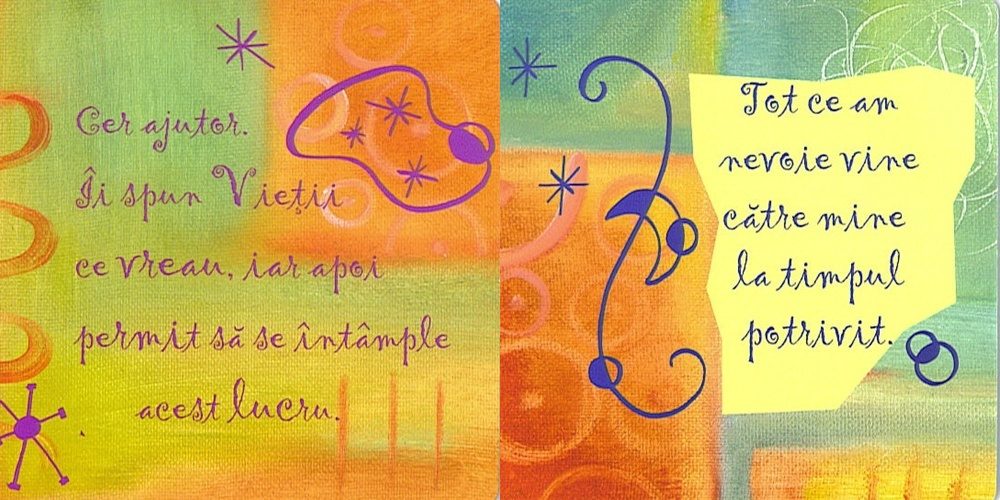 Cer ajutor.
Îi spun Vieţii
ce vreau, iar apoi
permit să se întâmple
acest lucru.
Tot ce am
nevoie vine
către mine
la timpul
potrivit.